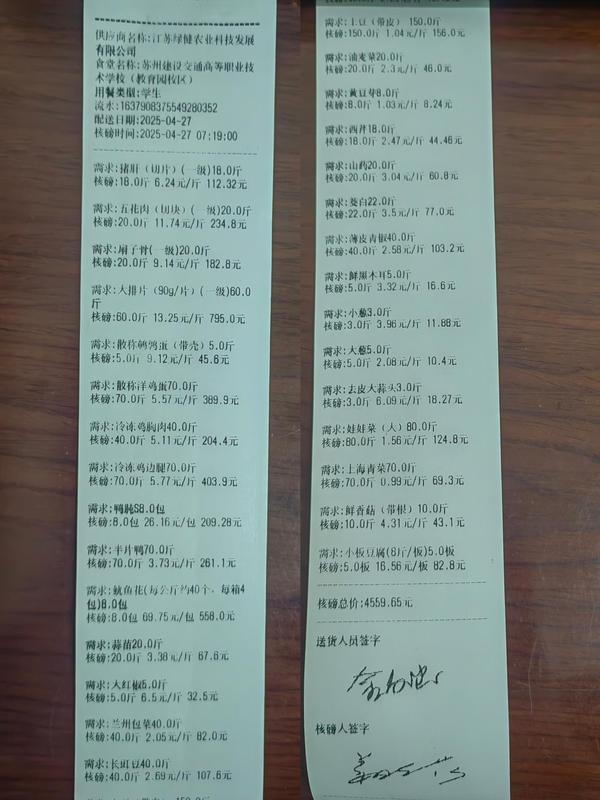 供应商名称:江苏绿健农业科技发展
有限公司
食堂名称:苏州建设交通高等职业技
术学校（教育园校区）
用餐类型:学生
流水:1637908375549280352
配送日期:2025-04-27
核磅时间:2025-04-27 07:19:00
需求:猪肝（切片）(一级)18.0斤
核磅:18.0斤 6.24元/斤 112.32元
需求:五花肉（切块）(一级)20.0斤
核磅:20.0斤 11.74元/斤 234.8元
需求:扇子骨(一级)20.0斤
核磅:20.0斤 9.14元/斤 182.8元
需求:大排片（90g/片）(一级)60.0
斤
核磅:60.0斤 13.25元/斤 795.0元
需求:散称鹌鹑蛋（带壳）5.0斤
核磅:5.0斤 9.12元/斤 45.6元
需求:散称洋鸡蛋70.0斤
核磅:70.0斤 5.57元/斤 389.9元
需求:冷冻鸡胸肉40.0斤
核磅:40.0斤 5.11元/斤 204.4元
需求:冷冻鸡边腿70.0斤
核磅:70.0斤 5.77元/斤 403.9元
需求:鸭肫S8.0包
核磅:8.0包 26.16元/包 209.28元
需求:半片鸭70.0斤
核磅:70.0斤 3.73元/斤 261.1元
需求:鱿鱼花(每公斤约40个，每箱4
包)8.0包
核磅:8.0包 69.75元/包 558.0元
需求:蒜苗20.0斤
核磅:20.0斤 3.38元/斤 67.6元
需求:大红椒5.0斤
核磅:5.0斤 6.5元/斤 32.5元
需求:兰州包菜40.0斤
核磅:40.0斤 2.05元/斤 82.0元
需求:长豇豆40.0斤
核磅:40.0斤 2.69元/斤 107.6元
需求:土豆（带皮）150.0斤
核磅:150.0斤 1.04元/斤 156.0元
需求:油麦菜20.0斤
核磅:20.0斤 2.3元/斤 46.0元
需求:黄豆芽8.0斤
核磅:8.0斤 1.03元/斤 8.24元
需求:西芹18.0斤
核磅:18.0斤 2.47元/斤 44.46元
需求:山药20.0斤
核磅:20.0斤 3.04元/斤 60.8元
需求:茭白22.0斤
核磅:22.0斤 3.5元/斤 77.0元
需求:薄皮青椒40.0斤
核磅:40.0斤 2.58元/斤 103.2元
需求:鲜黑木耳5.0斤
核磅:5.0斤 3.32元/斤 16.6元
需求:小葱3.0斤
核磅:3.0斤 3.96元/斤 11.88元
需求:大葱5.0斤
核磅:5.0斤 2.08元/斤 10.4元
需求:去皮大蒜头3.0斤
核磅:3.0斤 6.09元/斤 18.27元
需求:娃娃菜（大）80.0斤
核磅:80.0斤 1.56元/斤 124.8元
需求:上海青菜70.0斤
核磅:70.0斤 0.99元/斤 69.3元
需求:鲜香菇（带根）10.0斤
核磅:10.0斤 4.31元/斤 43.1元
需求:小板豆腐(8斤/板)5.0板
核磅:5.0板 16.56元/板 82.8元
核磅总价:4559.65元
送货人员签字
核磅人签字